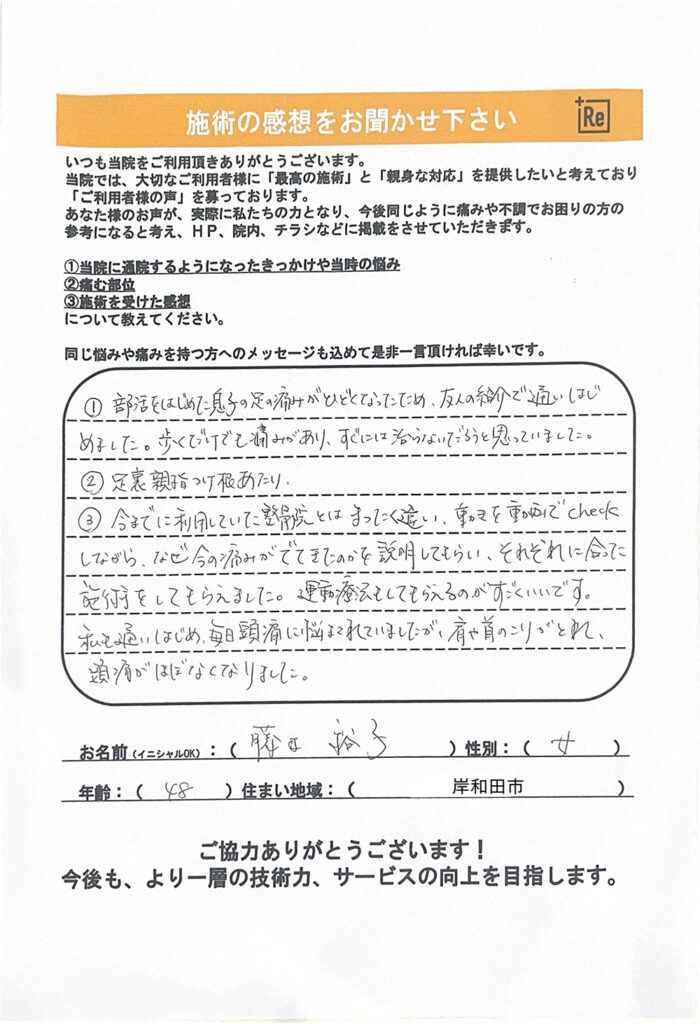 施術の感想をお聞かせ下さい
+Re
いつも当院をご利用頂きありがとうございます。
当院では、大切なご利用者様に「最高の施術」と「親身な対応」を提供したいと考えており
「ご利用者様の声」を募っております。
あなた様のお声が、実際に私たちの力となり、今後同じように痛みや不調でお困りの方の
参考になると考え、HP、院内、チラシなどに掲載をさせていただきます。
①当院に通院するようになったきっかけや当時の悩み
②痛む部位
③施術を受けた感想
について教えてください。
同じ悩みや痛みを持つ方へのメッセージも込めて是非一言頂ければ幸いです。
① 部活をはじめた息子の足の痛みがひどくなったため、友人の紹介で通いはじ
めました。歩くだけでも痛みがあり、すぐには治らないだろうと思っていました。
② 足裏親指つけ根あたり.
③ 今までに利用していた整骨院とはまったく違い、動きを動画でcheck
しながら、なぜ今の痛みがでてきたのかを説明してもらい、それぞれに合った
施術をしてもらえました。運動療法もしてもらえるのがすごくいいです。
私も通いはじめ、毎日頭痛に悩まされていましたが、肩や首のこりがとれ、
頭痛がほぼなくなりました。
お名前(イニシャルOK):( 藤 裕子 )性別:( 女 )
年齢:( 48 )住まい地域:( 岸和田市 )
ご協力ありがとうございます!
今後も、より一層の技術力、サービスの向上を目指します。